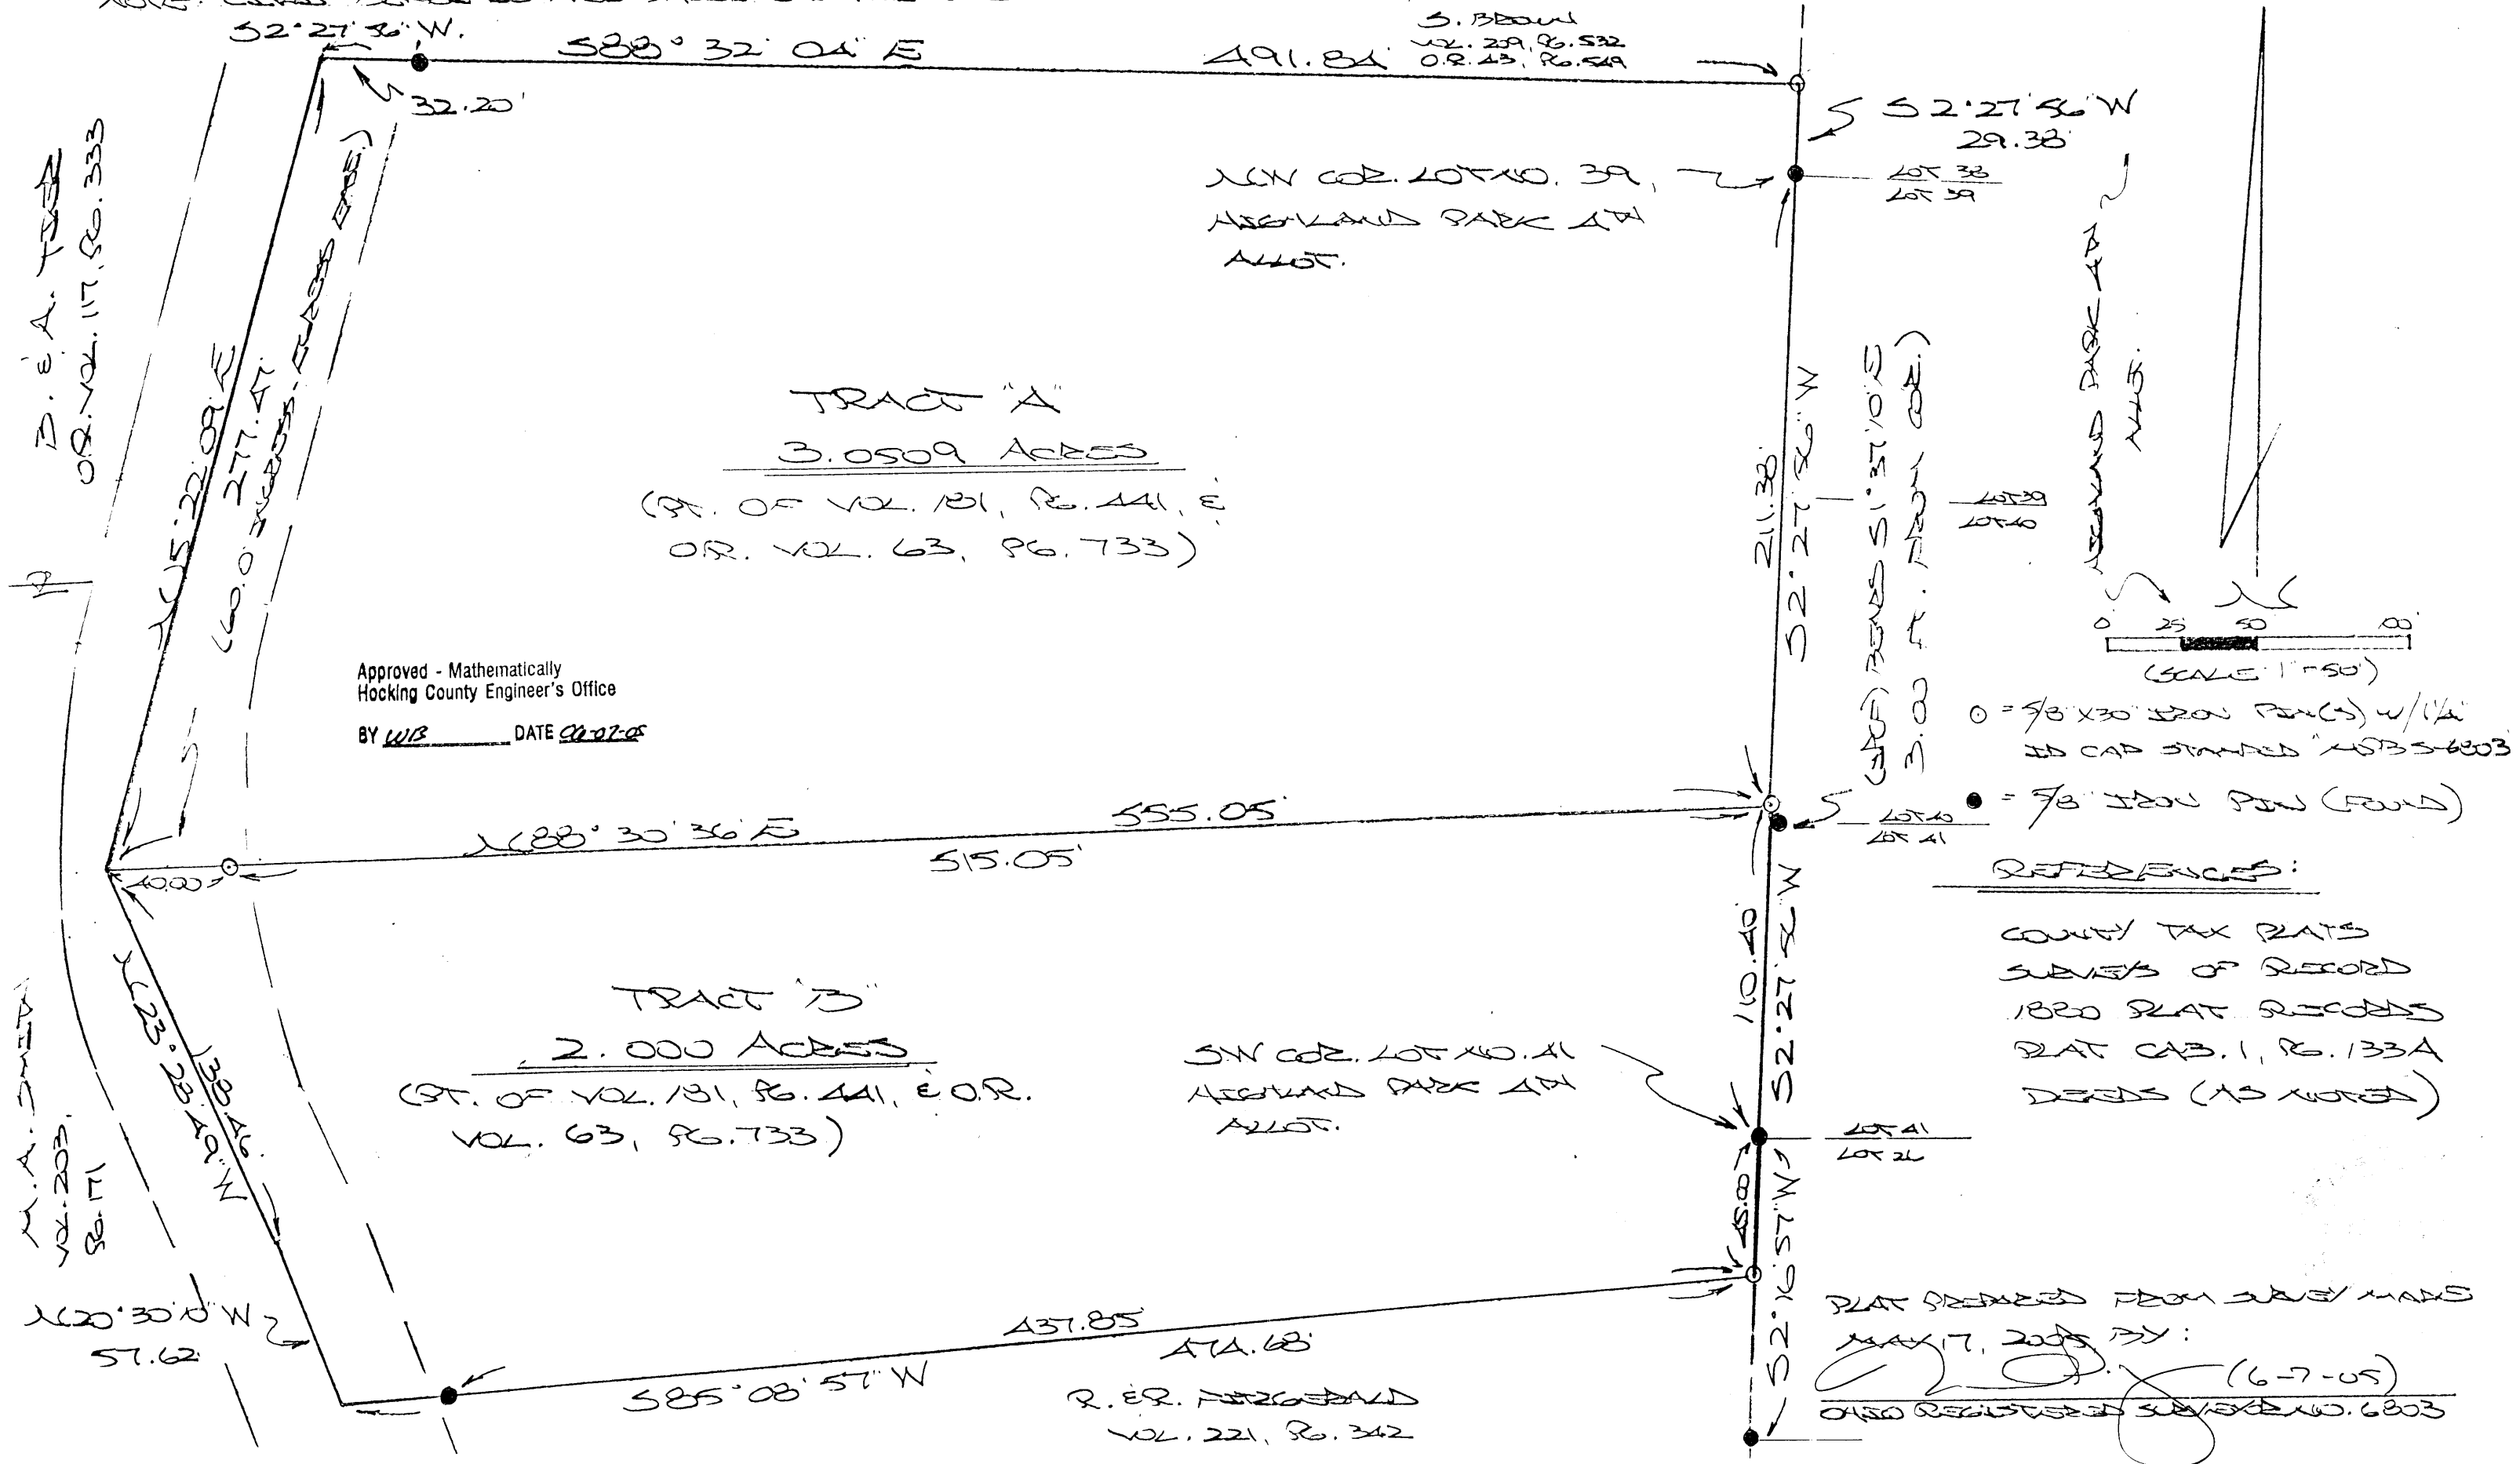 S2°27'56" W.
S88° 32' 04" E
491.84'
S. BROWN
VOL. 209, PG. 532
O.R. 43, PG. 549
32.20'
S 2°27'56" W
29.38'
NW COR. LOT NO. 39,
HIGHLAND PARK 4TH
ALLOT.
LOT 38
LOT 39
O.R. VOL. 117, PG. 333
N15°22'09" E
277.47'
(60.0' INGRESS-EGRESS ESMT.)
TRACT "A"
3.0509 ACRES
(PT. OF VOL. 181, PG. 441, &
O.R. VOL. 63, PG. 733)
211.38'
S2°27'56" W
S1°37'10" E
3.00 FT. FROM COR.)
LOT 39
LOT 40
HIGHLAND PARK 4TH
ALLOT.
N
0 25 50 100
(SCALE 1"=50')
O = 5/8"X30" IRON PIN(S) W/1 1/4"
ID CAP STAMPED
● = 5/8" IRON PIN (FOUND)
Approved - Mathematically
Hocking County Engineer's Office
BY WB DATE
N88°30'36" E
555.05'
515.05'
40.00'
LOT 40
LOT 41
REFERENCES:
COUNTY TAX PLATS
SURVEYS OF RECORD
1880 PLAT RECORDS
PLAT CAB. 1, PG. 133A
DEEDS (AS NOTED)
110.40'
S2°27'56" W
TRACT "B"
2.000 ACRES
(PT. OF VOL. 181, PG. 441, & O.R.
VOL. 63, PG. 733)
SW COR. LOT NO. 41
HIGHLAND PARK 4TH
ALLOT.
LOT 41
LOT 26
N23°28'49" W
138.46'
M. A. SMITH
VOL. 203,
PG. 171
45.00'
S2°16'57" W
N20°30'10" W
57.62'
437.85'
474.68'
S85°08'57" W
R. & R. FITZGERALD
VOL. 221, PG. 342
PLAT PREPARED FROM SURVEY MADE
MAY 17, 2005, BY:
(6-7-05)
OHIO REGISTERED SURVEYOR NO. 6803